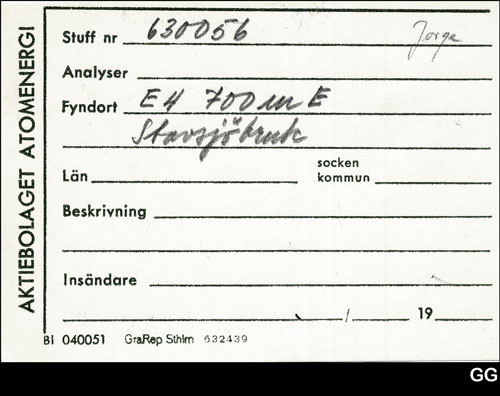 AKTIEBOLAGET ATOMENERGI
Stuff nr 630056 Jorge
Analyser
Fyndort E4 700 m E
Stavsjöbruk
Län socken kommun
Beskrivning
Insändare
/ 19
BI 040051 GraRep Sthlm 632439
GG